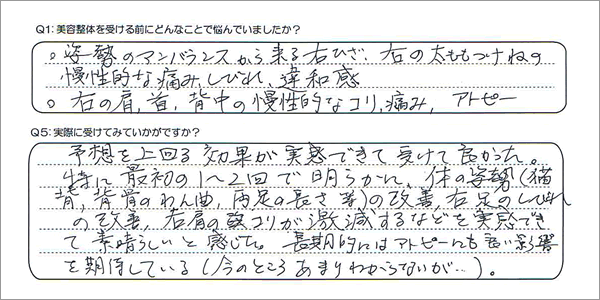 Q1: 美容整体を受ける前にどんなことで悩んでいましたか？
。姿勢のアンバランスから来る右ひざ、右の太ももつけねの
慢性的な痛み、しびれ、違和感
。右の肩、首、背中の慢性的なコリ、痛み、アトピー
Q5: 実際に受けてみていかがですか？
予想を上回る効果が実感できて受けて良かった。
特に最初の1〜2回で明らかに、体の姿勢(猫
背、背骨のわん曲、両足の長さ等)の改善、右足のしびれ
の改善、右肩の コリが激減するなどを実感でき
て素晴らしいと感じた。長期的にはアトピーにも良い影響
を期待している(今のところあまりわからないが…)。